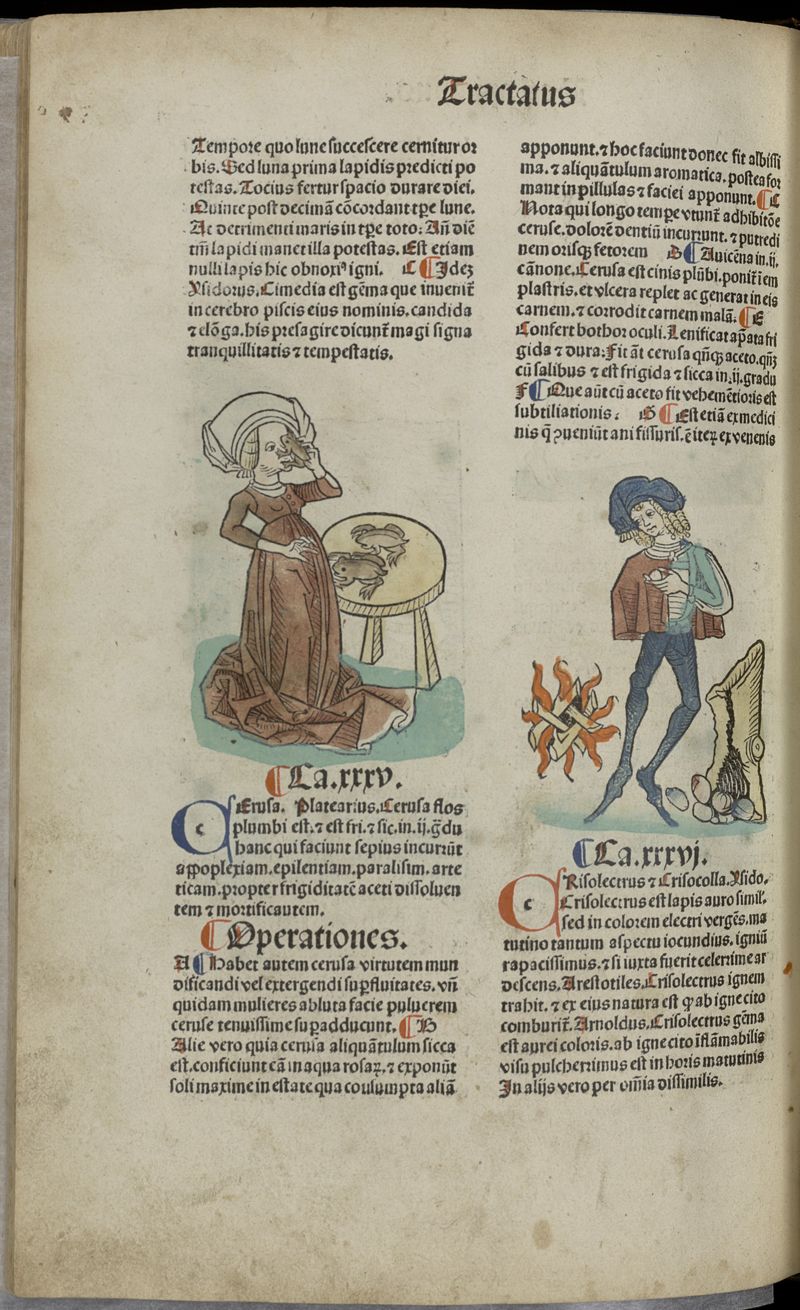 Tractatus
Tempore quo lune succescere cernitur or
bis. Sed luna prima lapidis predicti po
testas. Tocius fertur spacio durare diei.
Quinte post decimā cōcordant tꝑe lune.
Ac detrimenti maris in tꝑe toto: Añ diē
tm̄ lapidi manet illa potestas. Est etiam
nulli lapis hic obnoxiꝰ igni. C ¶ Idez
Ysidorus. Cimedia est gēma que inuenit̄
in cerebro piscis eius nominis. candida
⁊ elōga. his presagire dicunt̄ magi signa
tranquillitatis ⁊ tempestatis.
¶ Ca. xxxv.
c Erusa. Platearius. Cerusa flos
plumbi est. ⁊ est fri. ⁊ sic. in. ij. g̃du
hanc qui faciunt sepius incurrūt
appoplexiam. epilentiam. paralisim. arte
ticam. propter frigiditatē aceti dissoluen
tem ⁊ mortificantem.
¶ Operationes.
A ¶ Habet autem cerusa virtutem mun
dificandi vel extergendi suꝑfluitates. vñ
quidam mulieres abluta facie puluerem
ceruse tenuissime suꝑadducunt. ¶ B
Alie vero quia cerusa aliquātulum sicca
est. conficiunt eā in aqua rosaꝝ. ⁊ exponūt
soli maxime in estate qua consumpta aliā
apponunt. ⁊ hoc faciunt donec fit albissi
ma. ⁊ aliquātulum aromatica. postea for
mant in pillulas ⁊ faciei apponunt. ¶ C
Nota qui longo tempe vtunt̄ adhibitōe
ceruse. dolorē dentiū incurrunt. ⁊ putredi
nem orisqꝫ fetorem D ¶ Auicēna in. ij.
cānone. Cerusa est cinis plūbi. ponit̄ iem
plastris. et vlcera replet ac generat in eis
carnem. ⁊ corrodit carnem malā. ¶ E
Confert bothor oculi. Lenificat apata fri
gida ⁊ dura: Fit āt cerusa qn̄qꝫ aceto. qn̄qꝫ
cū salibus ⁊ est frigida ⁊ sicca in. ij. gradu
F ¶ Que aūt cū aceto fit vehemētioris est
subtiliationis: G ¶ Est etiā ex medici
nis q̄ ꝓueniūt ani fissuris. ē iteꝝ ex venenis
¶ Ca. xxxvj.
c Risolectrus ⁊ Crisocolla. Ysido.
Crisolectrus est lapis auro simil.
sed in colorem electri vergēs. ma
tutino tantum aspectu iocundius. igniū
rapacissimus. ⁊ si iuxta fuerit celerrime ar
descens. Arestotiles. Crisolectrus ignem
trahit. ⁊ ex eius natura est ꝙ ab igne cito
comburit̄. Arnoldus. Crisolectrus gēma
est aurei coloris. ab igne cito īflāmabilis
visu pulcherrimus est in horis matutinis
In alijs vero per om̄ia dissimilis.